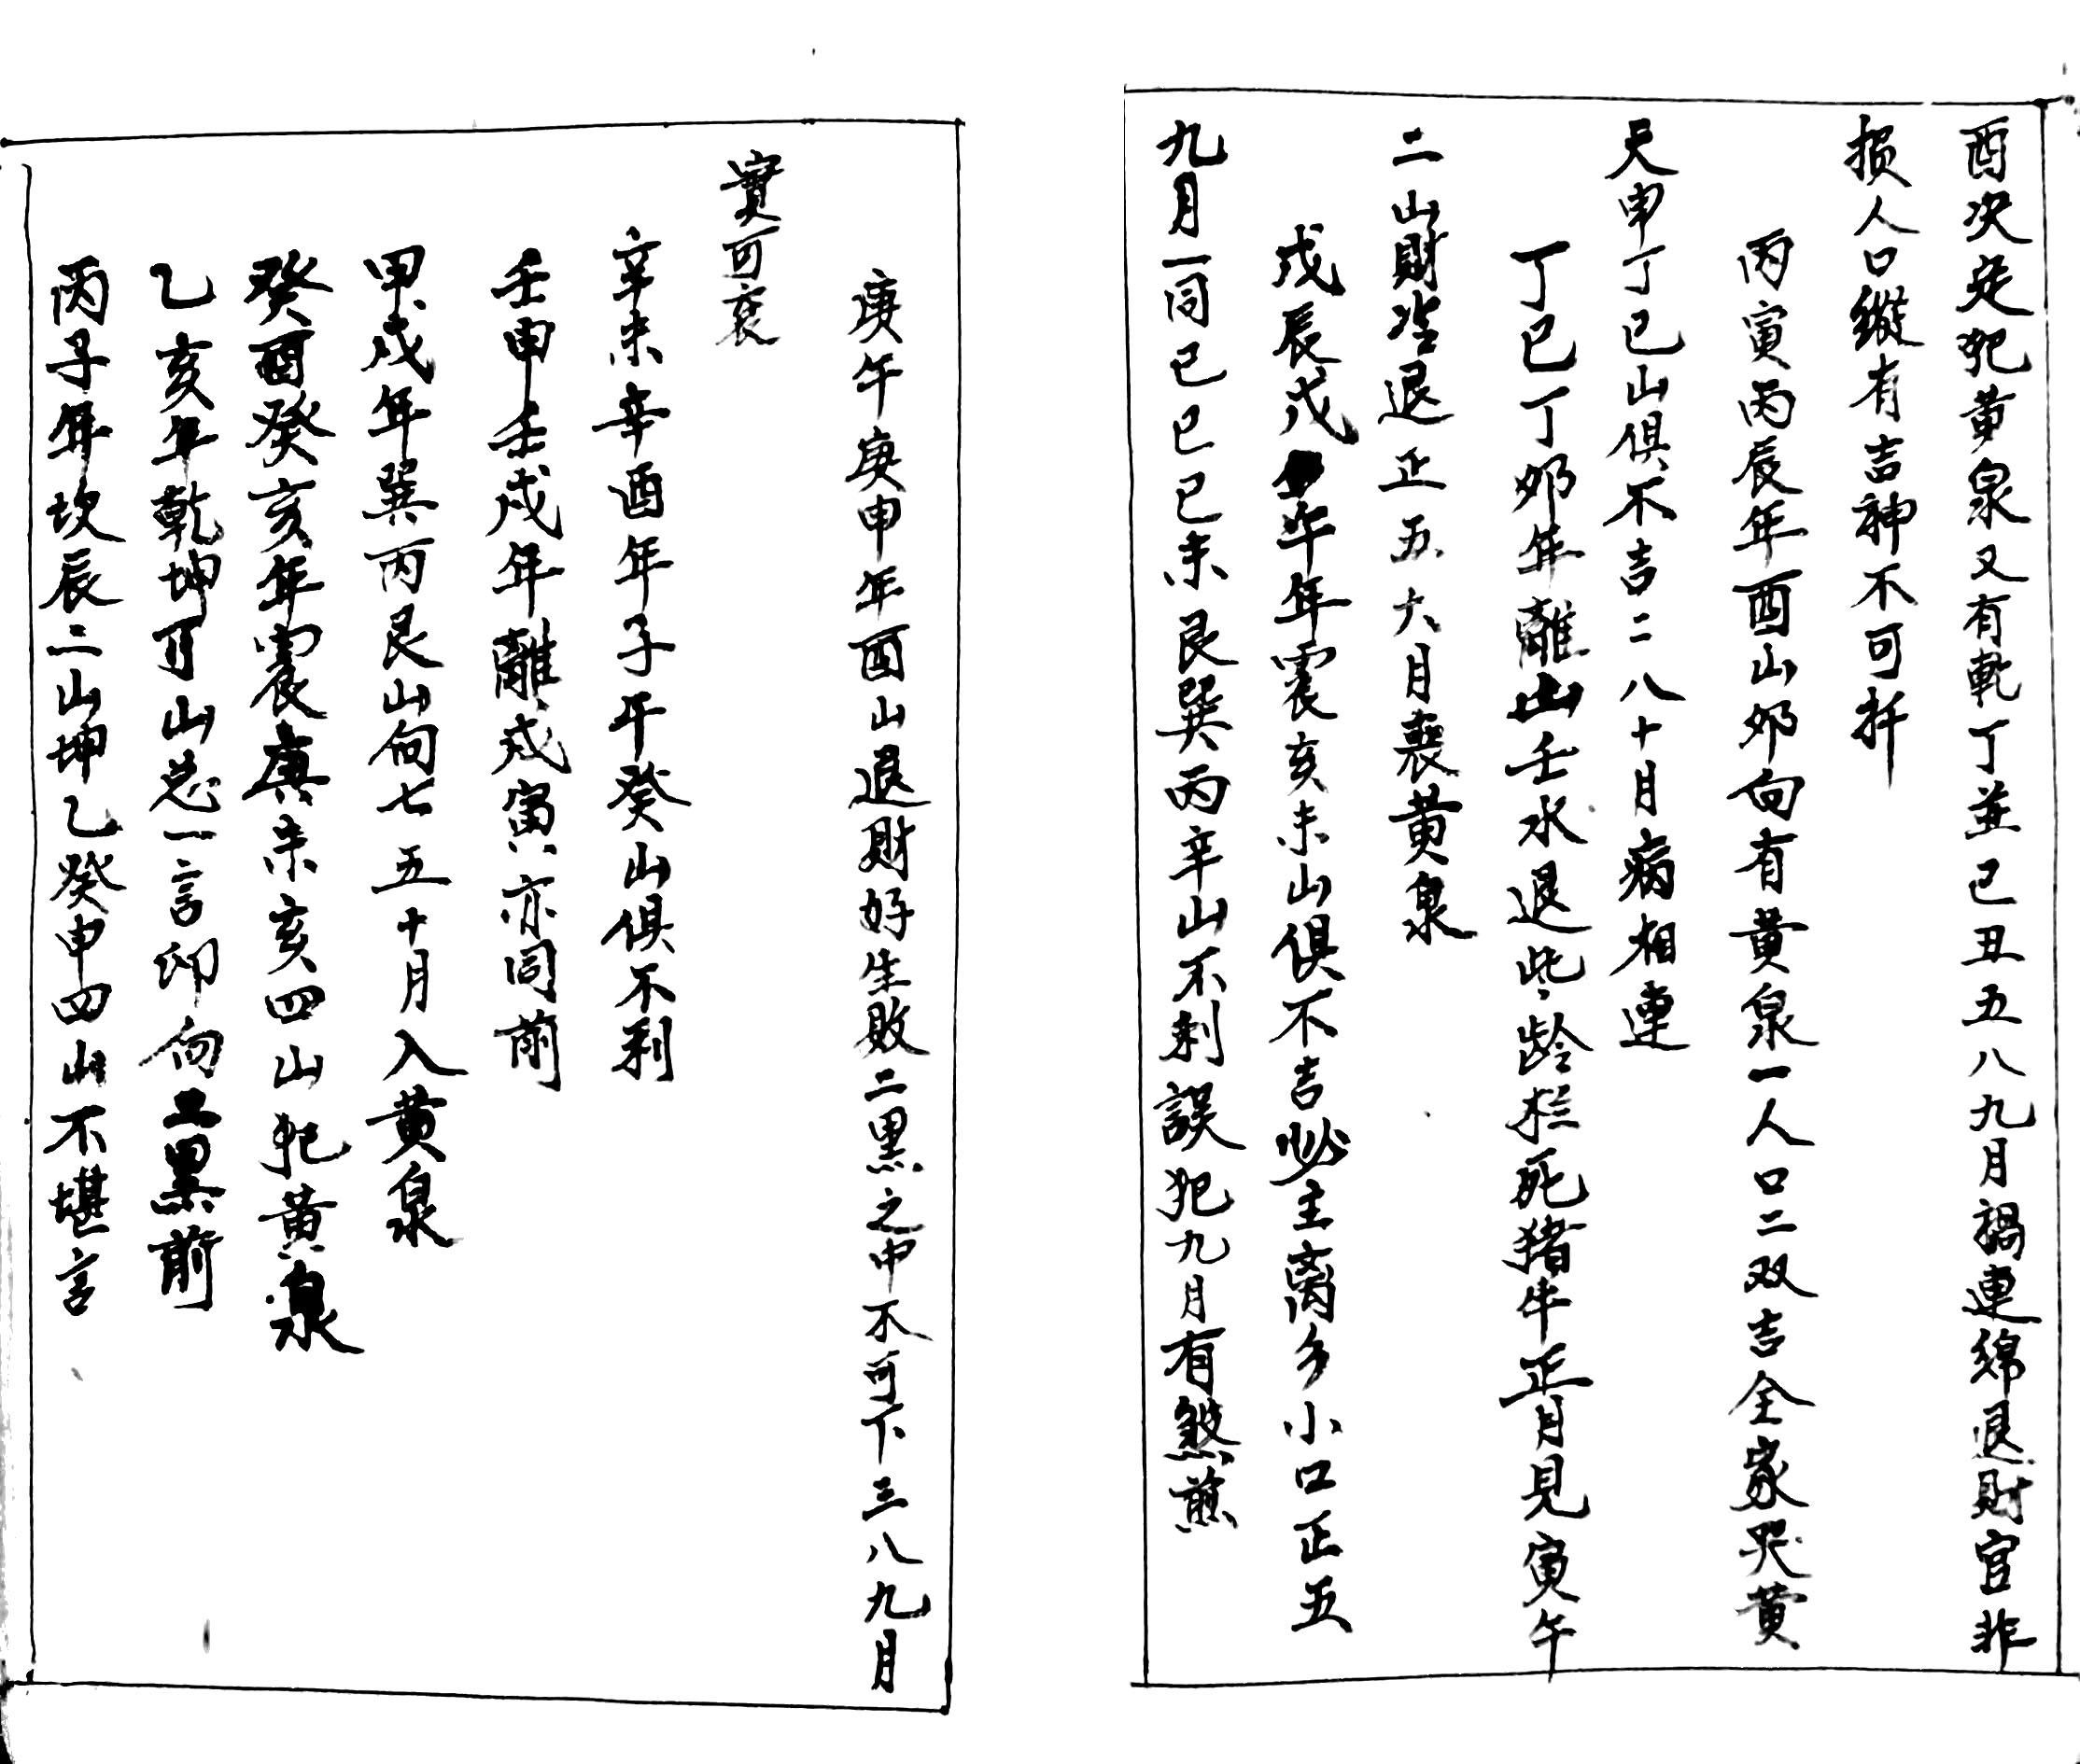 酉决定犯黄泉又有乾丁並己丑五八九月禍連綿退財官非
損人口縱有吉神不可扦
丙寅丙辰年酉山卯向有黄泉一人口二双吉全家哭黄
天申丁巳山俱不吉二八十月病相連
丁巳丁卯年離山壬水退此龄拦死猪牛正月見寅午
二山財皆退正五六月喪黄泉
戊辰戊午年震亥未山俱不吉妙主离乡小口正五
九月一同己巳己未艮巽丙辛山不利誤犯九月有煞煎
庚午庚申年酉山退財好生敗二黑之中不可下三八九月
實可哀
辛未辛酉年子午癸山俱不利
壬申壬戌年離戌寅亦同前
甲戌年巽丙艮山向七五十月入黄泉
癸酉癸亥年震庚未亥四山犯黄泉
乙亥年乾坤丁山忌一言卯向二黑前
丙子年坎辰二山坤乙癸申四山不堪言